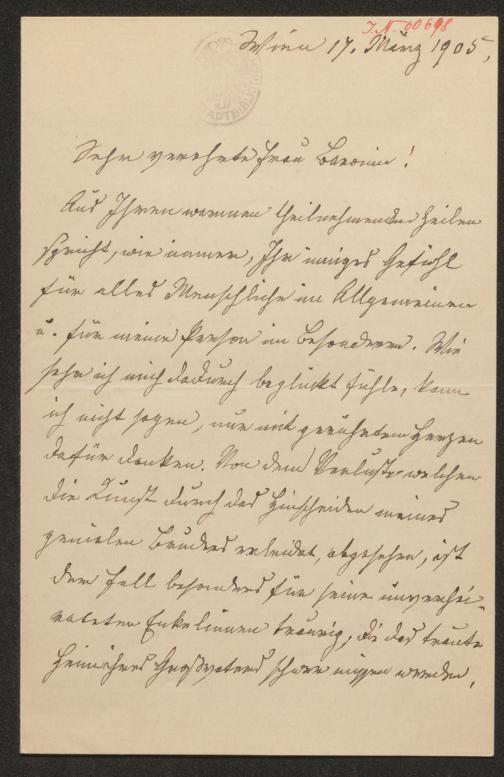 J.N. 00698
Wien 17. März 1905,
STADTBIBLIOTHEK
Sehr verehrte Frau Baronin!
Aus Ihren warmen theilnehmenden Zeilen
spricht, wie immer, Ihr inniges Gefühl
für alles Menschliche im Allgemeinen
u. für meine Person im Besonderen. Wie
sehr ich mich dadurch beglückt fühle, kann
ich nicht sagen, nur mit gerührtem Herzen
dafür danken. Von dem Verluste welchen
die Kunst durch das Hinscheiden meines
genialen Bruders erleidet, abgesehen, ist
der Fall besonders für seine unverhei-
rateten Enkelinnen traurig, die das traute
Heim ihres Großvaters schwer missen werden,